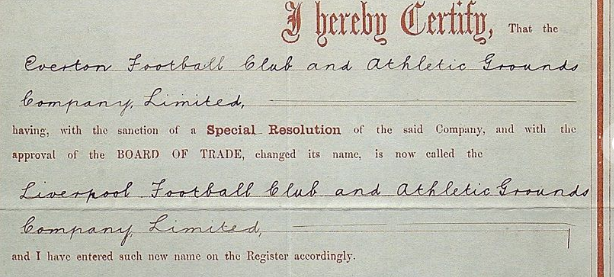 I hereby Certify, That the
Everton Football Club and Athletic Grounds
Company, Limited,
having, with the sanction of a Special Resolution of the said Company, and with the
approval of the BOARD OF TRADE, changed its name, is now called the
Liverpool Football Club and Athletic Grounds
Company Limited,
and I have entered such new name on the Register accordingly.